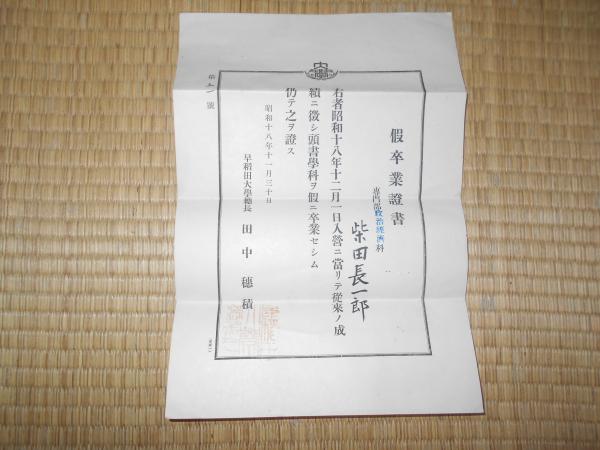 大學
假卒業證書
專門部政治經濟科
柴田長一郎
右者昭和十八年十二月一日入營ニ當リテ從來ノ成
績ニ徴シ頭書學科ヲ假ニ卒業セシム
仍テ之ヲ證ス
昭和十八年十一月三十日
早稻田大學總長 田中穗積
第 號